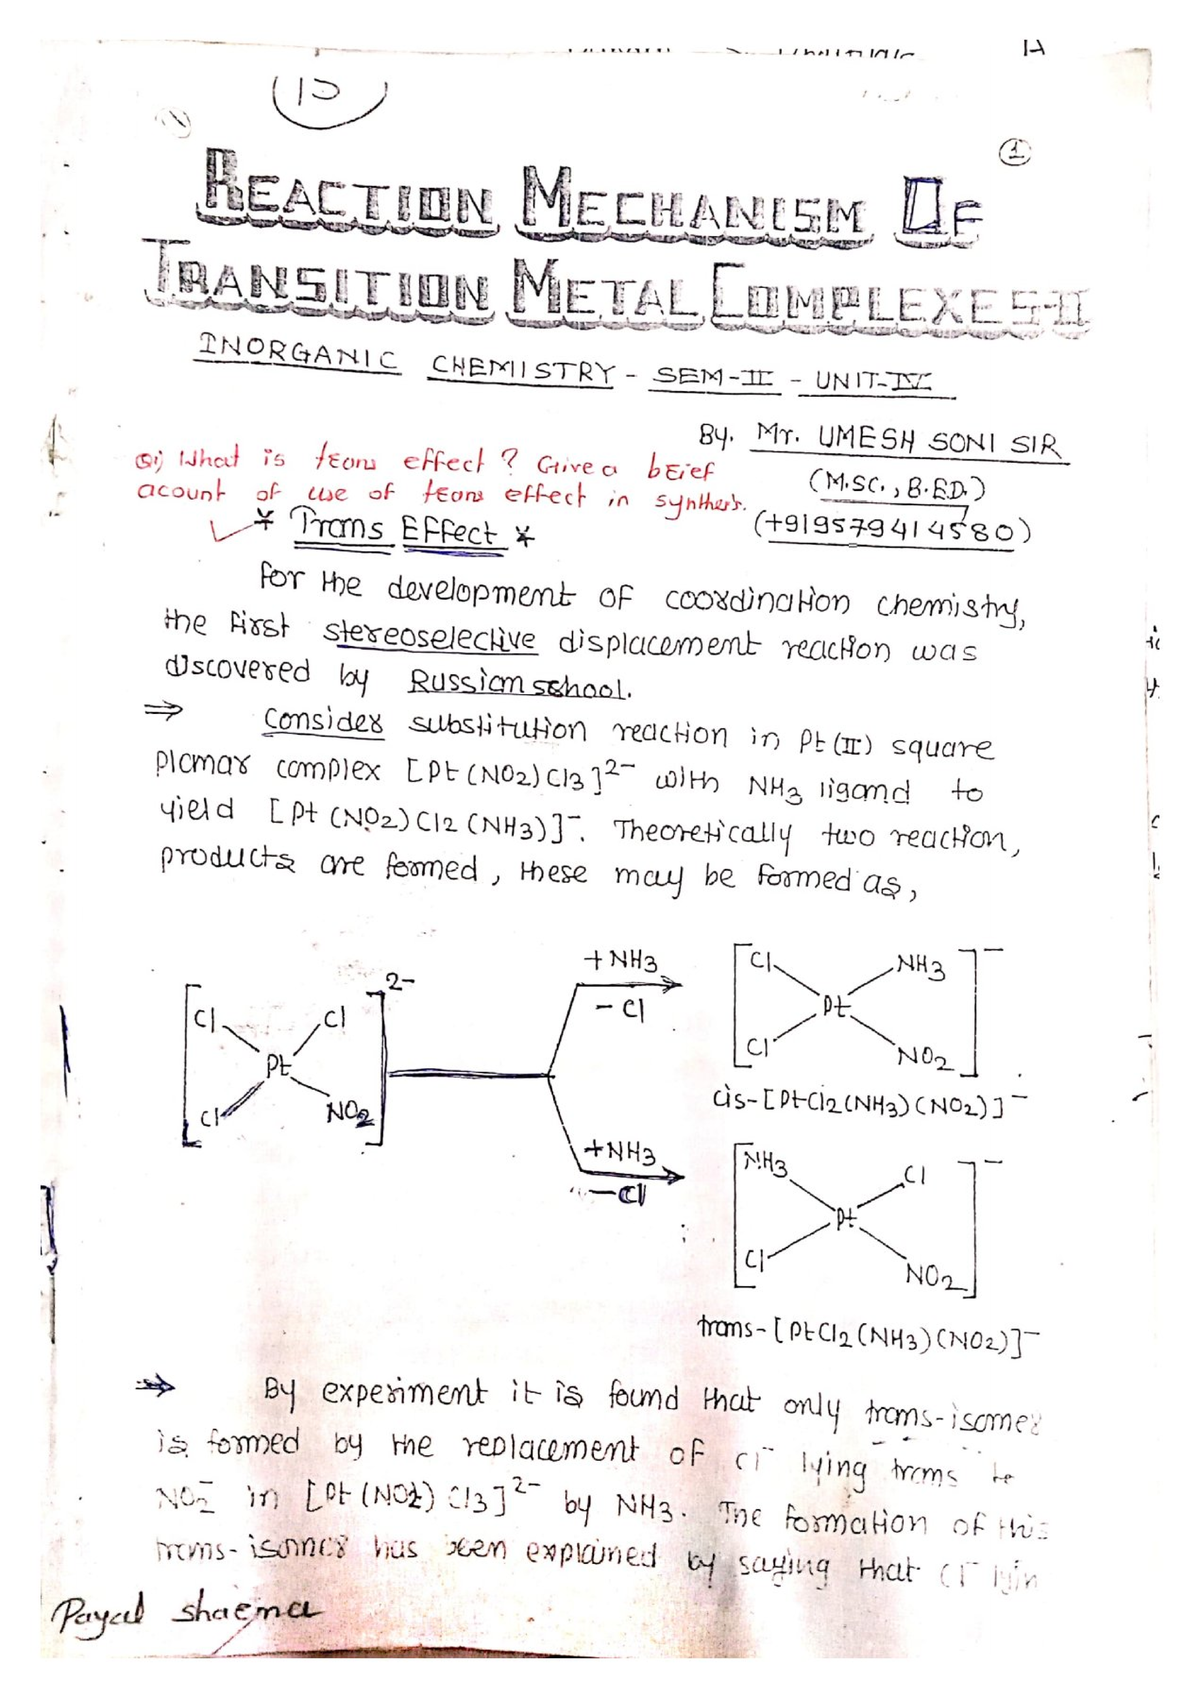 10
1
REACTION MECHANISM OF
TRANSITION METAL COMPLEXES-II
INORGANIC CHEMISTRY - SEM-II - UNIT-IV
By. Mr. UMESH SONI SIR
(M.SC., B.ED.)
(+919579414580)
Q1) What is trans effect? Give a brief
acount of use of trans effect in synthesis.
* Trans Effect *
For the development of coordination chemistry,
the first stereoselective displacement reaction was
discovered by Russian school.
⇒ Consider substitution reaction in Pt(II) square
planar complex [Pt(NO2)Cl3]2- with NH3 ligand to
yield [Pt(NO2)Cl2(NH3)]-. Theoretically two reaction,
products are formed, these may be formed as,
+NH3
-Cl
Cl NH3
Pt
Cl NO2
-
cis-[PtCl2(NH3)(NO2)]-
Cl Cl
Pt
Cl NO2
2-
+NH3
-Cl
NH3 Cl
Pt
Cl NO2
-
trans-[PtCl2(NH3)(NO2)]-
⇒ By experiment it is found that only trans-isomer
is formed by the replacement of Cl- lying trans to
NO2- in [Pt(NO2)Cl3]2- by NH3. The formation of this
trans-isomer has been explained by saying that Cl- lyin
Payal sharma